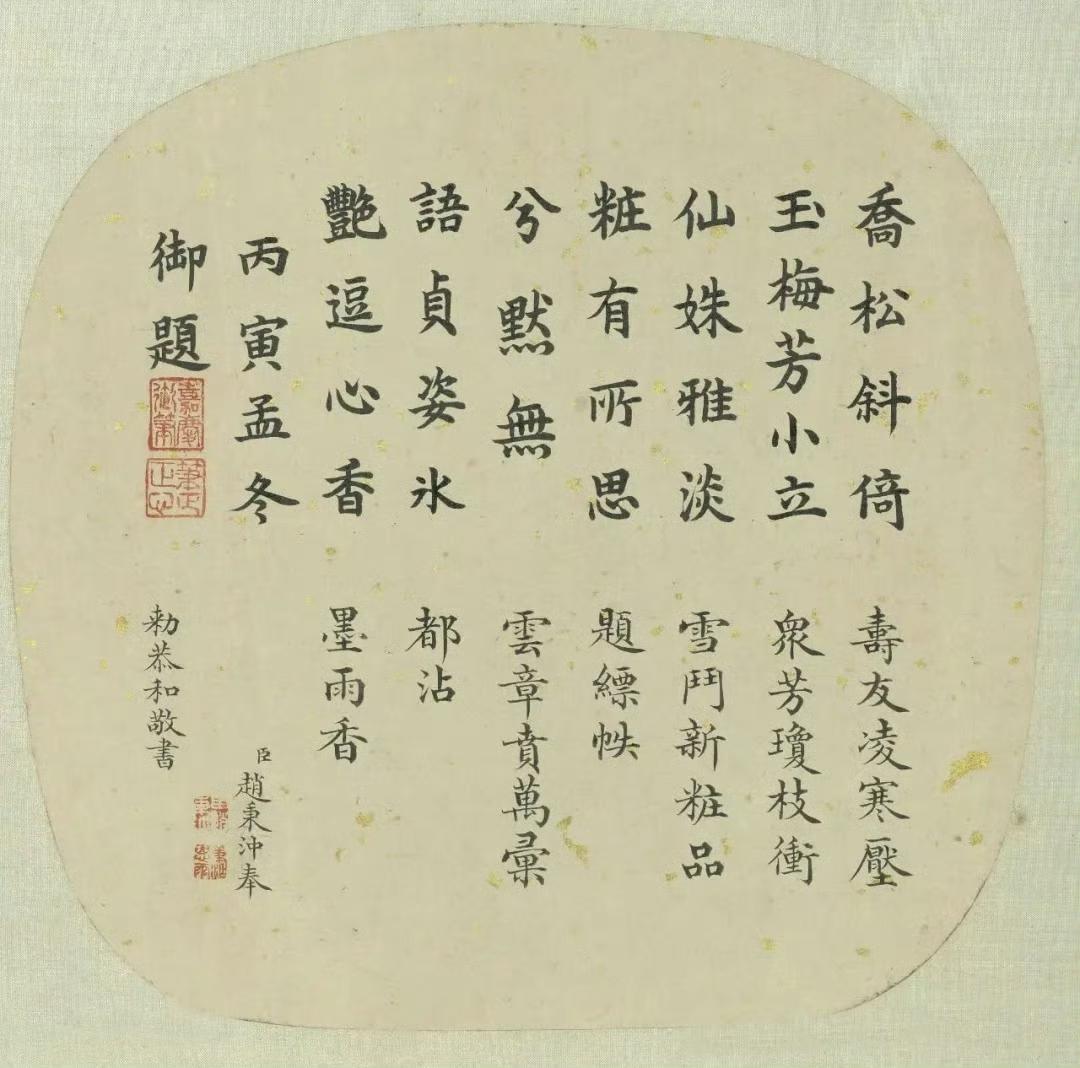 喬松斜倚
玉梅芳小立
仙姝雅淡
粧有所思
兮默無
語貞姿氷
艷逗心香
丙寅孟冬
御題
嘉慶
御筆
筆正
心正
壽友凌寒壓
衆芳瓊枝衝
雪鬥新粧品
題縹帙
雲章賁萬彙
都沾
墨雨香
臣趙秉沖奉
勅恭和敬書